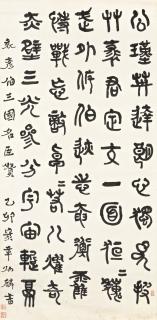 公瑾英達朗心獨見披
草求君定交一面桓〻魏
武外託霸迹志掩衡霍
恃戰忘敵卓〻若人曜奇
赤壁三光參分宇宙暫隔
袁彥伯三國名臣贊 乙卯歲章炳麟書